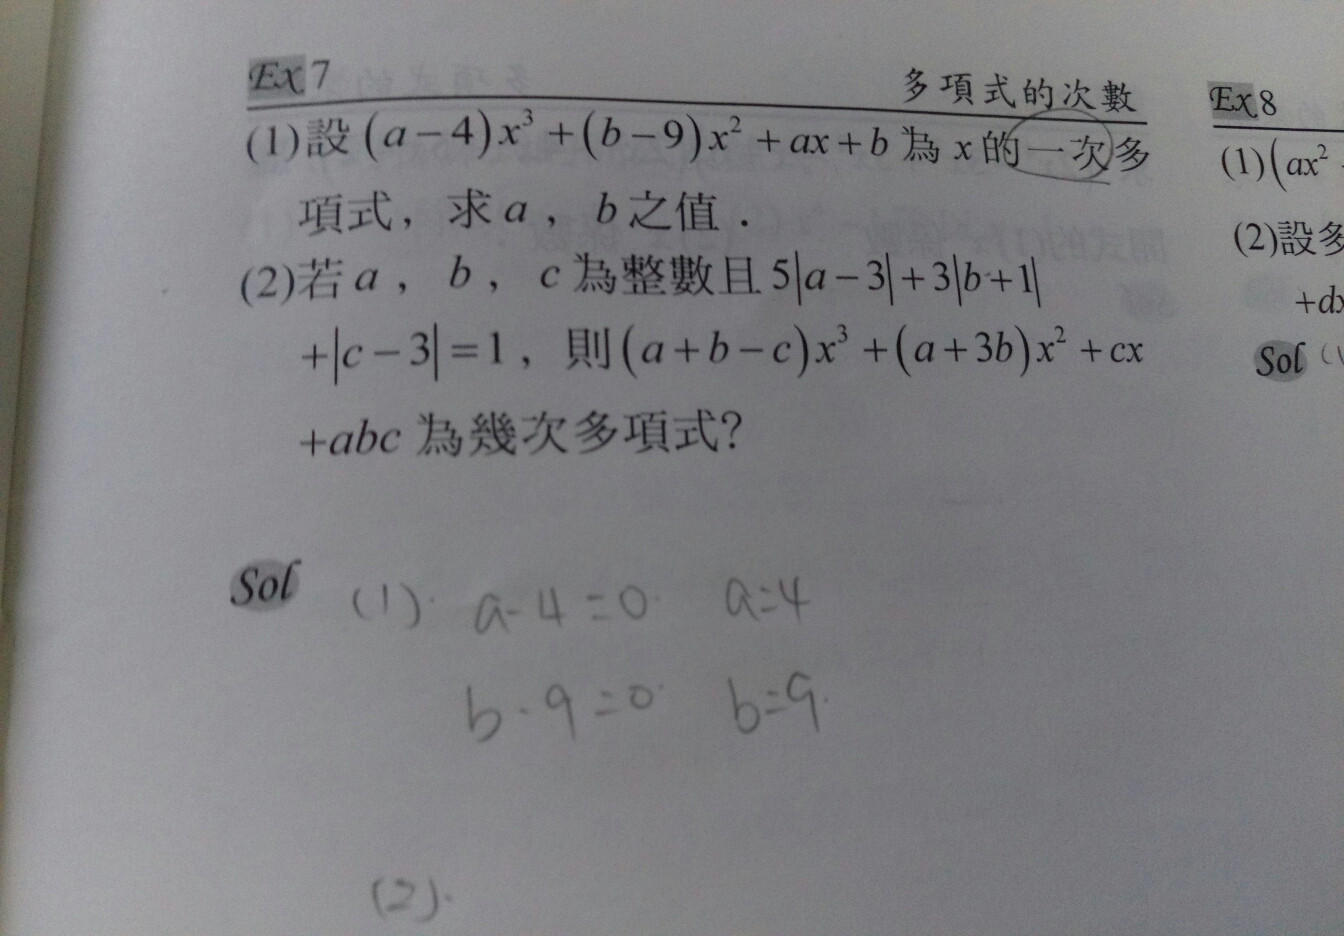 Ex 7 多項式的次數
(1)設(a－4)x³＋(b－9)x²＋ax＋b為x的一次多
項式，求a，b之值．
(2)若a，b，c為整數且5|a－3|＋3|b＋1|
＋|c－3|＝1，則(a＋b－c)x³＋(a＋3b)x²＋cx
＋abc為幾次多項式?
Sol (1). a-4=0. a=4
b-9=0. b=9.
(2).
Ex 8
(1)(ax²
(2)設多
+dx
Sol